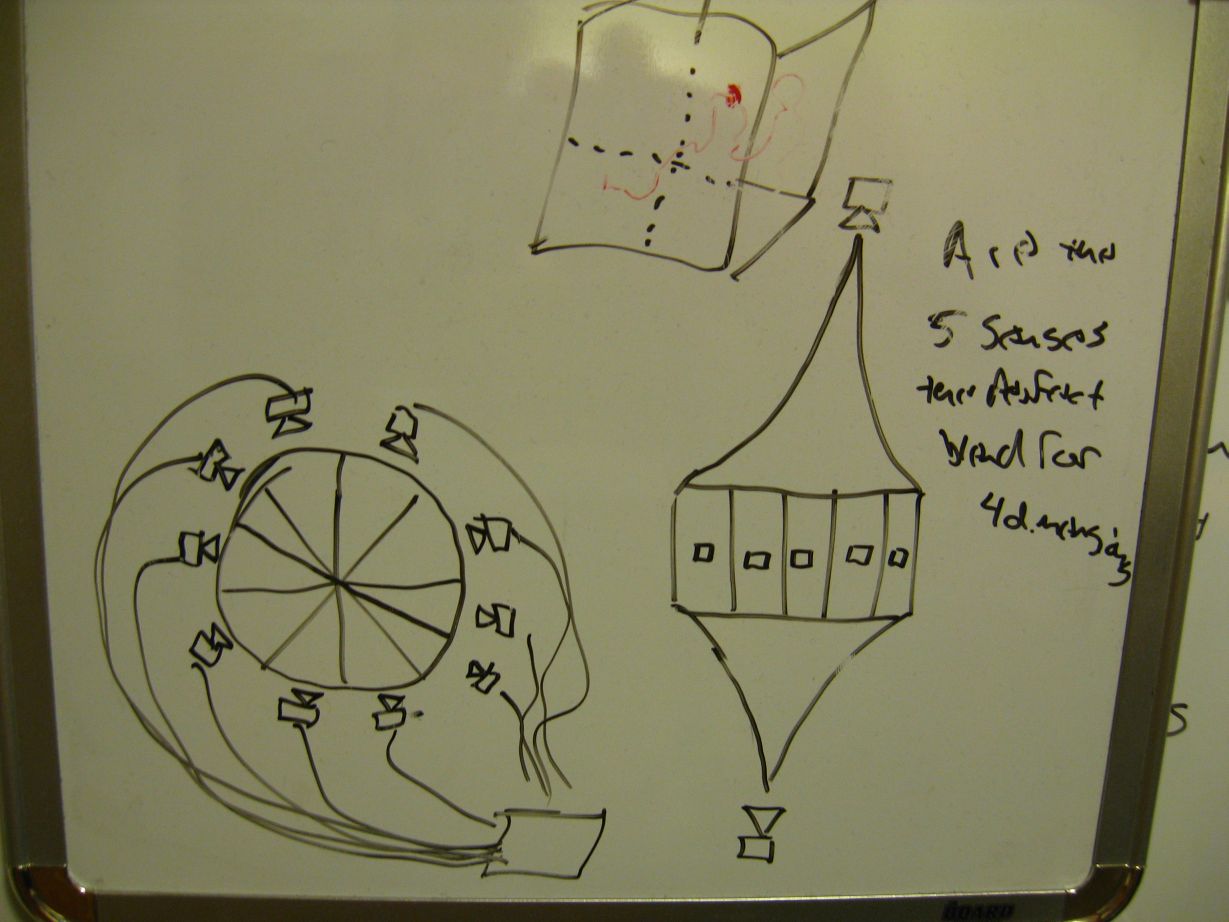 Are the
5 Senses
the Perfect
blend for
4dimensions
BOARD
S